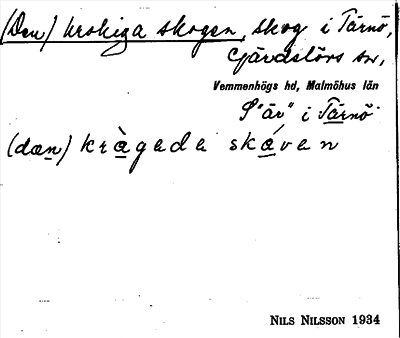 (Den) krokiga skogen, skog i Tärnö,
Gärdslövs sn,
Vemmenhögs hd, Malmöhus län
S "är" i Tärnö
(dæn) kràgada skáven
NILS NILSSON 1934